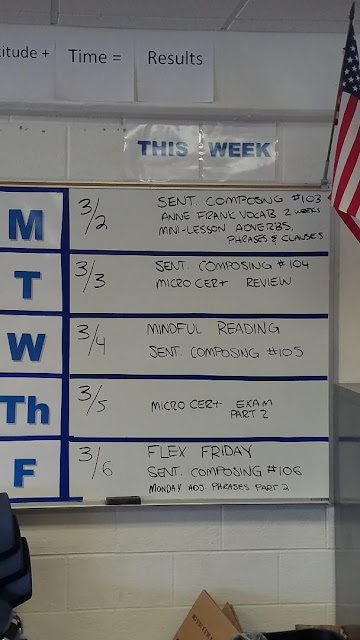 titude +
Time =
Results
THIS WEEK
M
3/2
SENT. COMPOSING #103
ANNE FRANK VOCAB 2 WEEKS
MINI-LESSON ADVERBS,
PHRASES & CLAUSES
T
3/3
SENT. COMPOSING #104
MICRO CERT REVIEW
W
3/4
MINDFUL READING
SENT. COMPOSING #105
Th
3/5
MICRO CERT EXAM
PART 2
F
3/6
FLEX FRIDAY
SENT. COMPOSING #106
MONDAY ADJ. PHRASES PART 2